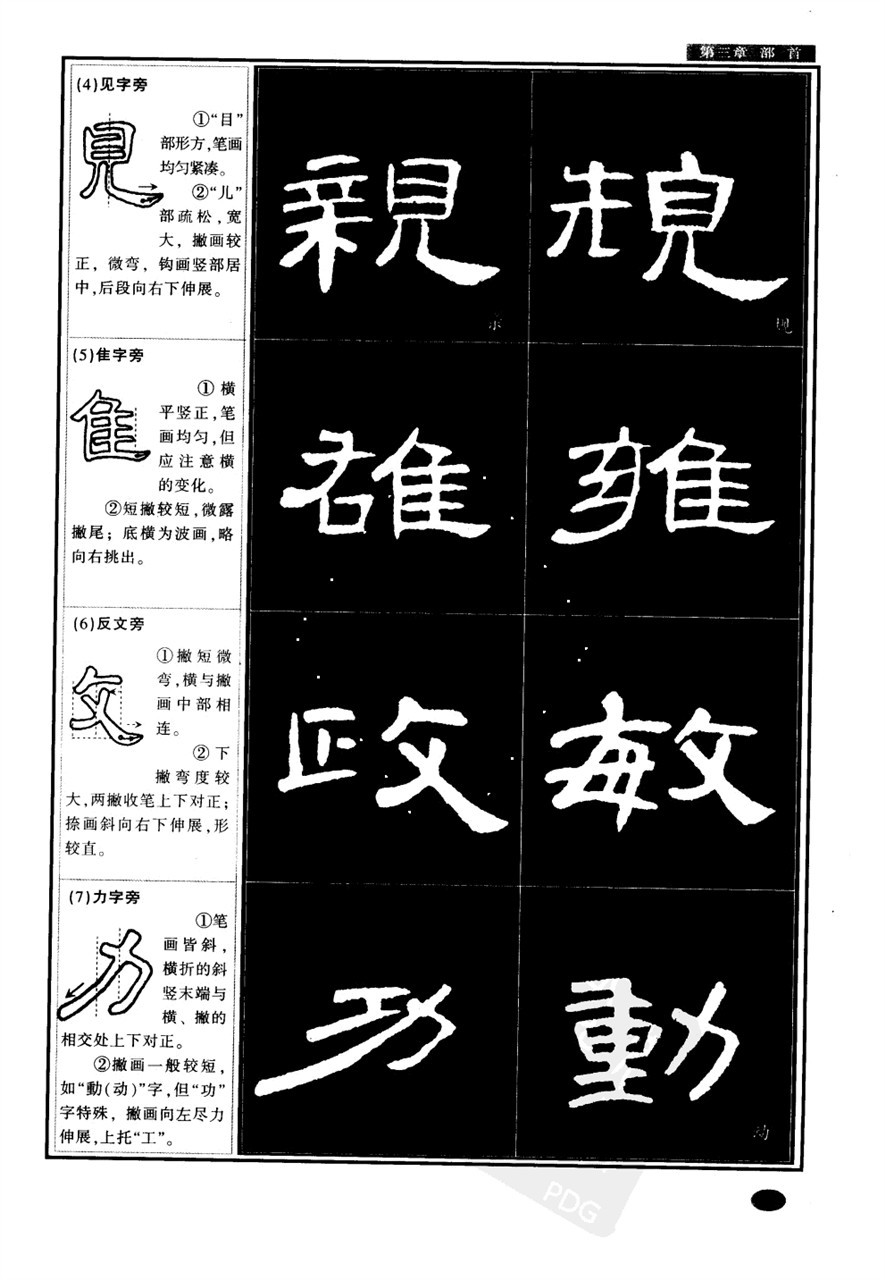 第三章 部 首
(4)见字旁
見
①“目”
部形方,笔画
均匀紧凑。
②“儿”
部疏松,宽
大,撇画较
正,微弯,钩画竖部居
中,后段向右下伸展。
親 規
亲 规
(5)隹字旁
隹
①横
平竖正,笔
画均匀,但
应注意横
的变化。
②短撇较短,微露
撇尾;底横为波画,略
向右挑出。
雄 雍
(6)反文旁
攵
①撇短微
弯,横与撇
画中部相
连。
②下
撇弯度较
大,两撇收笔上下对正;
捺画斜向右下伸展,形
较直。
政 敏
(7)力字旁
力
①笔
画皆斜,
横折的斜
竖末端与
横、撇的
相交处上下对正。
②撇画一般较短,
如“動(动)”字,但“功”
字特殊,撇画向左尽力
伸展,上托“工”。
功 動
动
PDG